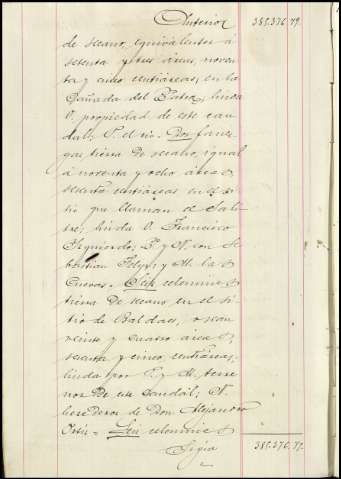 Anterior 385.376.79.
de secano, equivalentes á
setenta y tres áreas, noven-
ta y cinco centiáreas, en la
Cañada del Batra, linda
O. propiedad de este cau-
dal; P. el rio. Dos fane-
gas, tierra de secano, igual
á noventa y ocho áreas
sesenta centiáreas en el si-
tio que llaman el Sala-
tre; linda O. Francisco
Izquierdo, P. y N. con Se-
bastian y M. las
Cuevas. Seis celemines
tierra de secano en el si-
tio de Baldaes, o sean
veinte y cuatro áreas,
sesenta y cinco centiáreas,
linda por P. y M. terre-
nos de este caudal; N.
herederos de Don Alejandro
Ortiz. Seis celemines
Sigue 385.376.79.